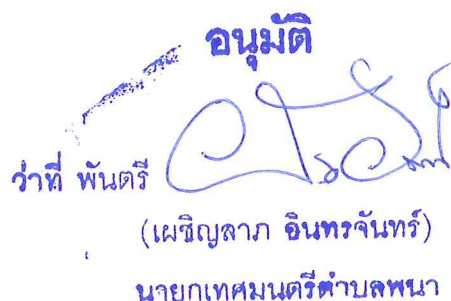 อนุมัติ
ว่าที่ พันตรี
(เผชิญลาภ อินทรจันทร์)
นายกเทศมนตรีตำบลพนา